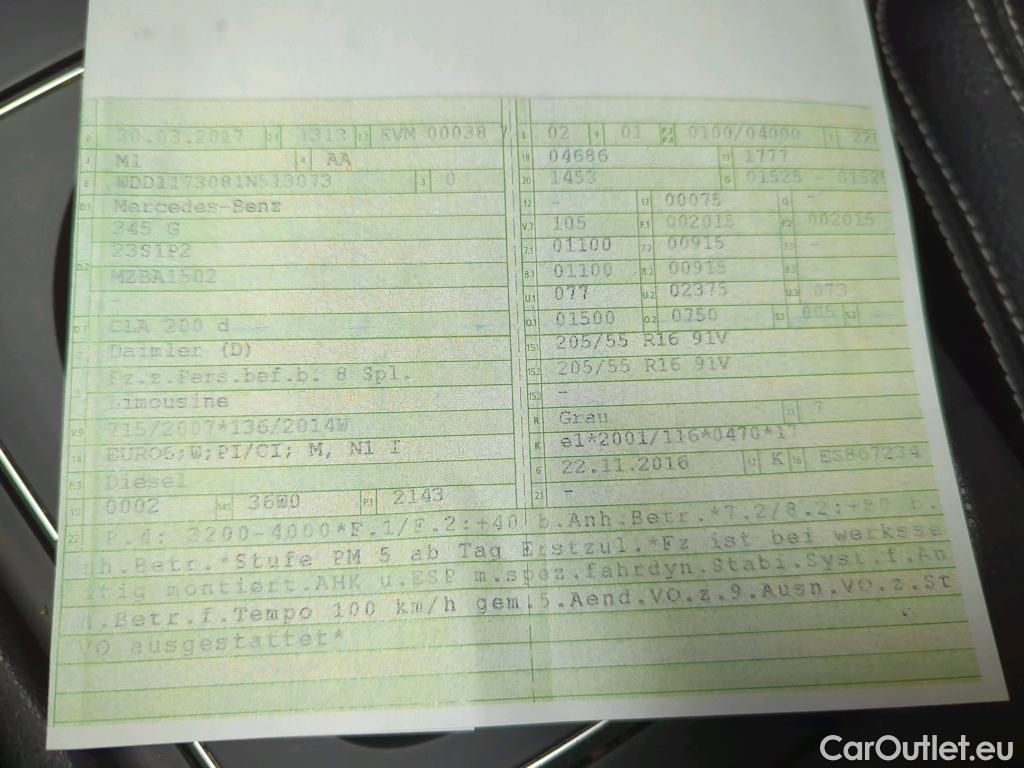 B 30.03.2017 2.1 1313 2.2 EVM 00038 7
J M1 4 AA
E WDD1173081N513073 3 0
D.1 Mercedes-Benz
245 G
D.2 23S1P2
MZBA1502
-
D.3 CLA 200 d
2 Daimler (D)
5 Fz.z.Pers.bef.b. 8 Spl.
Limousine
V.9 715/2007*136/2014W
14 EURO6;W;PI/CI; M, N1 I
P.3 Diesel
10 0002 14.1 36W0 P.1 2143
L 02 9 01 P.2 P.4 0100/04000 T 22
18 04686 19 1777
20 1453 G 01525 - 0152
12 - 13 00075 Q -
V.7 105 F.1 002015 F.2 002015
7.1 01100 7.2 00915 7.3 -
8.1 01100 8.2 00915 8.3 -
U.1 077 U.2 02375 U.3 073
O.1 01500 O.2 0750 S.1 005 S.2
15.1 205/55 R16 91V
15.2 205/55 R16 91V
15.3 -
R Grau 11 7
K e1*2001/116*0470*17
6 22.11.2016 17 K 16 ES867234
21 -
22 P.4: 3200-4000*F.1/F.2:+40 b.Anh.Betr.*7.2/8.2:+80 b.
nh.Betr.*Stufe PM 5 ab Tag Erstzul.*Fz ist bei werksse
itig montiert.AHK u.ESP m.spez.fahrdyn.Stabi.Syst.f.An
h.Betr.f.Tempo 100 km/h gem.5.Aend.VO.z.9.Ausn.VO.z.St
VO ausgestattet*
CarOutlet.eu